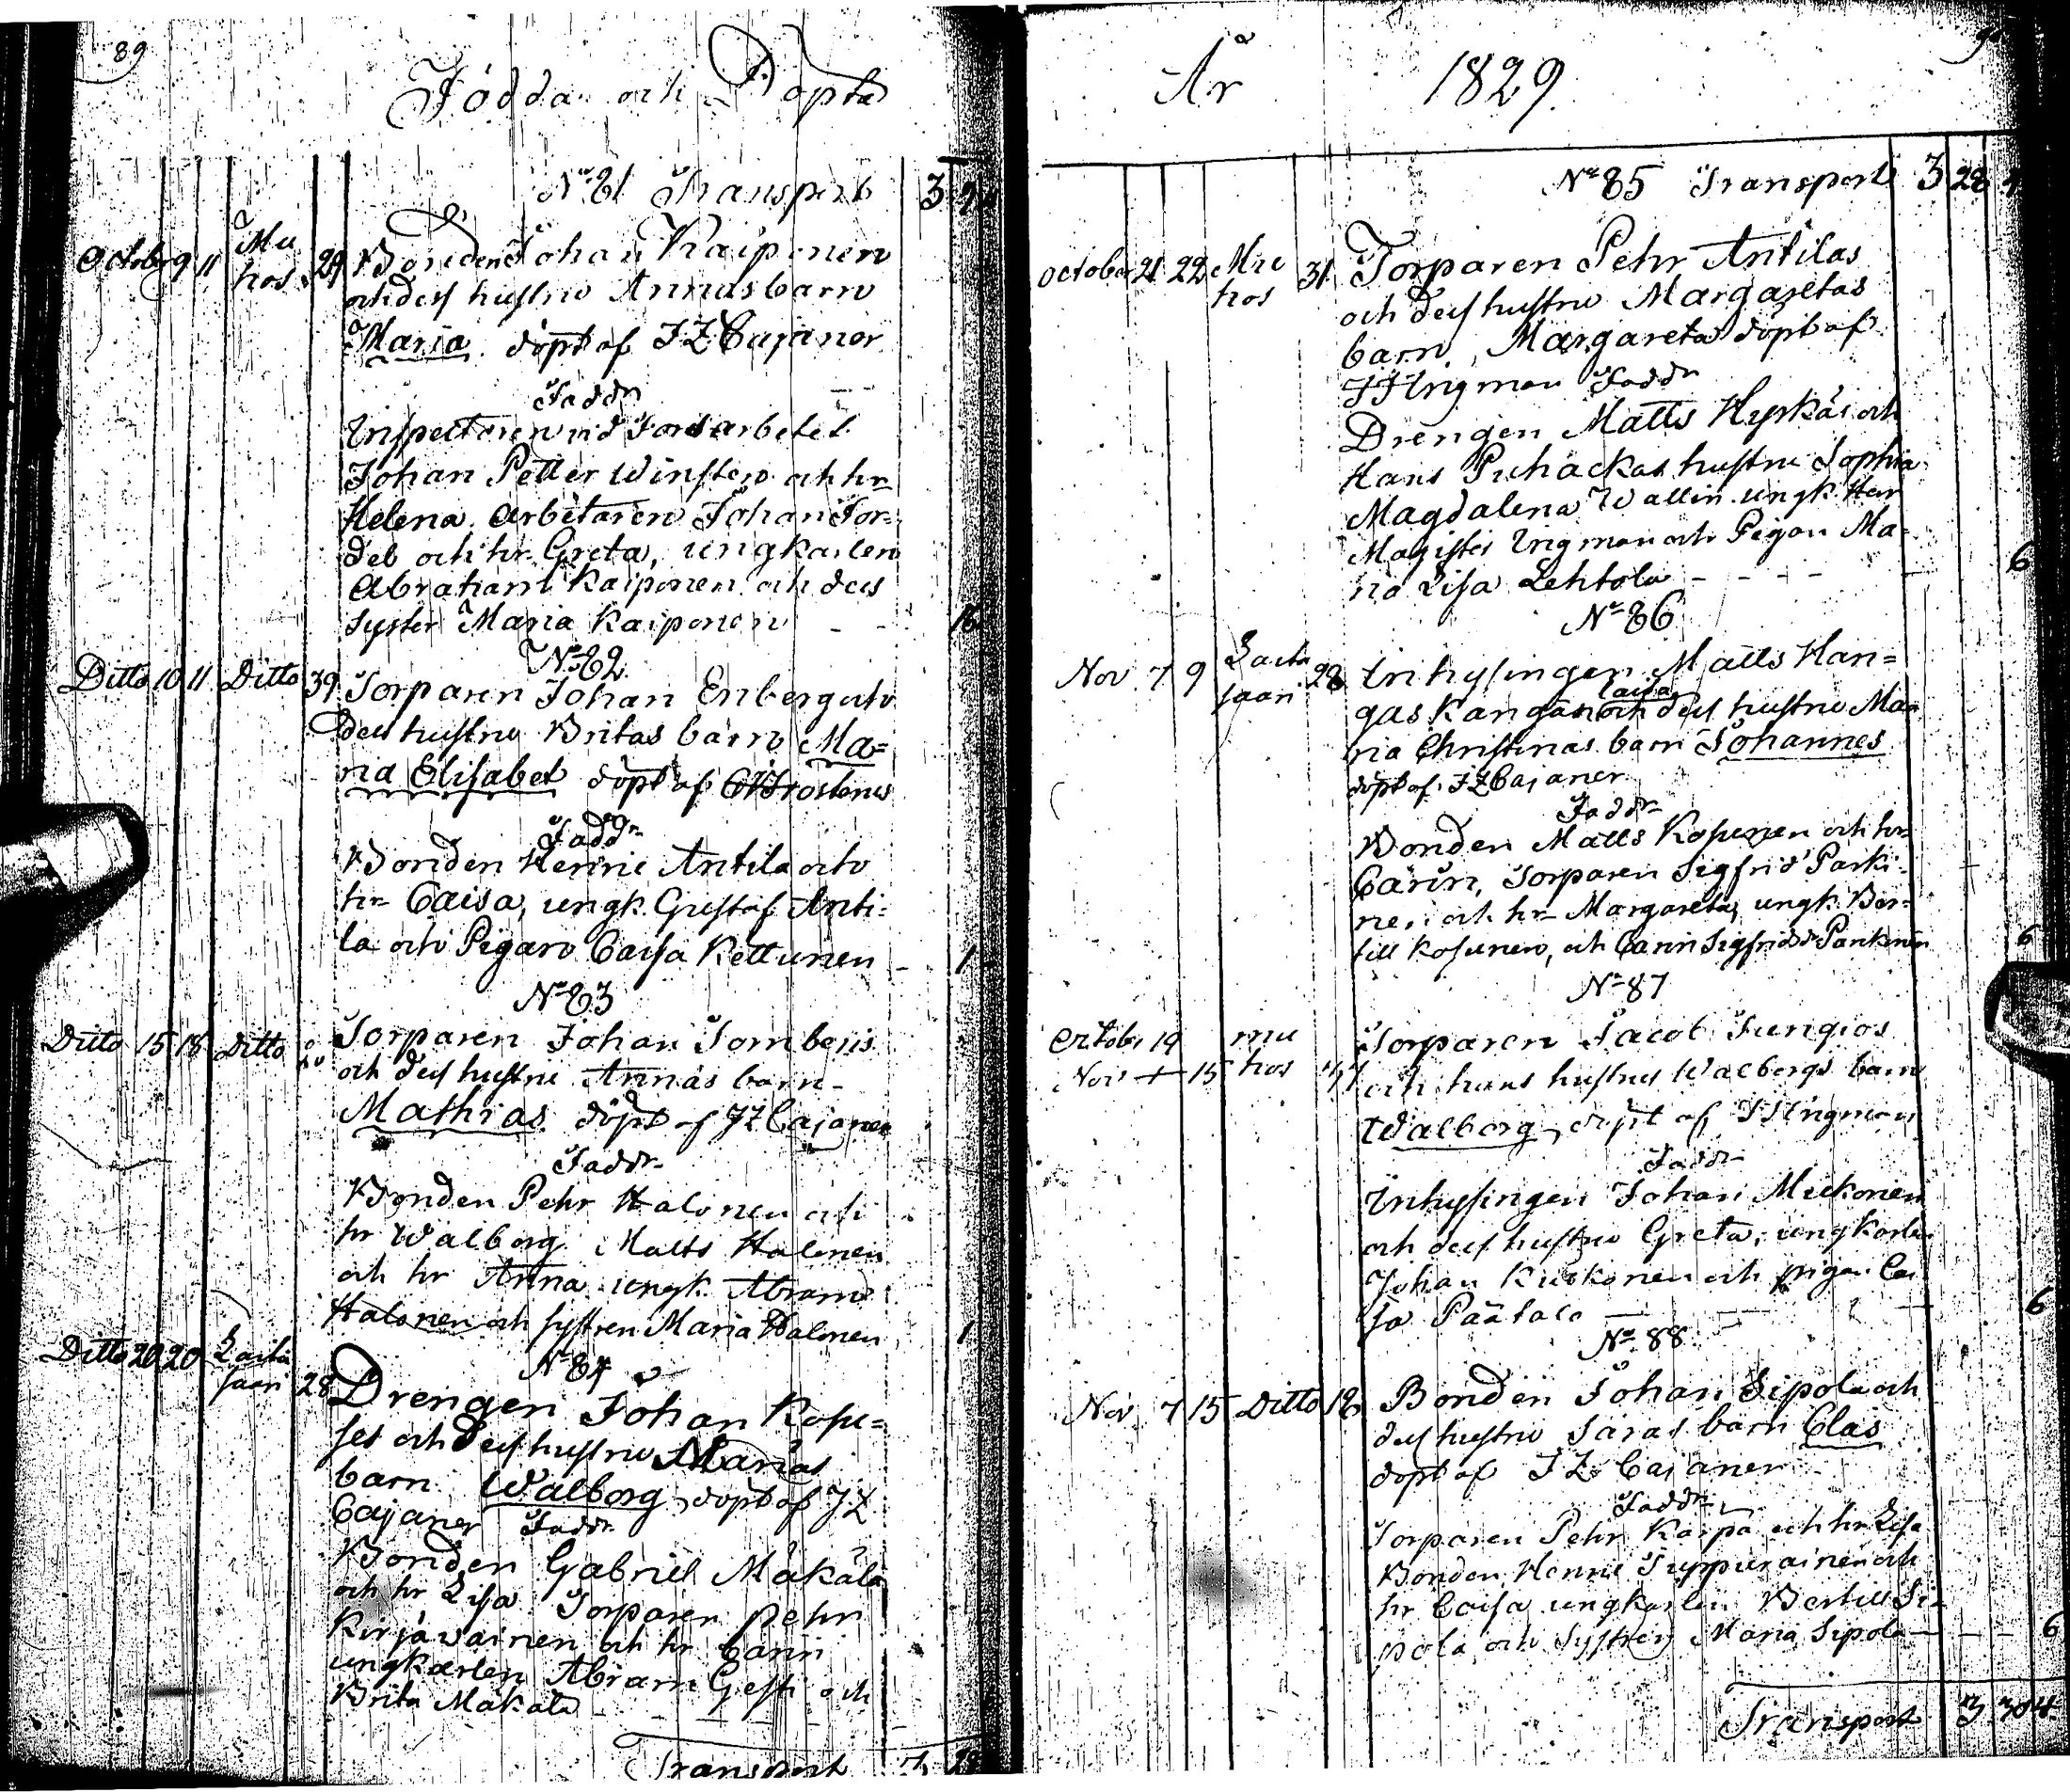 89
Födda och Döpta
No 81 Transport 3
October 9 11 Mu
hos 29 Bonden Johan Kaiponen
och dess hustru Annas barn
Maria döpt af J Z Cajaner
Faddr
Inspectoren vid Forsarbetet
Johan Petter Winsten och hr
Helena Arbetaren Johan For=
del och hr Greta, ungkarlen
Abraham Kaiponen och dess
syster Maria Kaiponen
No 82
Ditto 10 11 Ditto 39 Torparen Johan Enberg och
dess hustru Britas barn Ma=
ria Elisabet döpt af
Faddr
Bonden Henric Antila och
hr Caisa, ungk. Gustaf Anti=
la och Pigan Caisa Kettunen 1
No 83
Ditto 15 18 Ditto Torparen Johan Tornberis
och dess hustru Annas barn
Mathias döpt af JZ Cajaner
Faddr
Bonden Pehr Halonen och
hr Walborg Matts Halonen
och hr Anna ungk. Abram
Halonen och systren Maria Halonen 1
No 84
Ditto 20 20
saari 28 Drengen Johan Kosu=
ses och dess hustru Marias
barn Walborg döpt af JZ
Cajaner Faddr
Bonden Gabriel Mäkälä
och hr Lisa Torparen Pehr
Kirjavainen och hr Carin
ungkarlen Abram Gesti och
Brita Mäkälä
Transport 3 28
År 1829
No 85 Transport 3 28
October 21 22 Mu
hos 31 Torparen Pehr Antilas
och dess hustru Margaretas
barn, Margareta döpt af
J F Ingman Faddr
Drengen Matts Hyrkäs och
Hans Puhackas hustru Sophia
Magdalena Wallin ungk. Herr
Magister Ingman och Pigan Ma=
ria Lisa Lehtola 6
No 86
Nov 7 9
saari 28 Inhysingen Matts Han=
gaskangas och dess hustru Ma=
ria Christinas barn Johannes
döpt af J Z Cajaner
Faddr
Bonden Matts Kosunen och hr
Carin, Torparen Sigfrid Parki=
nen och hr Margareta, ungk. Ber=
till Kosunen, och Carin Sigfridsdr Parkinen 6
No 87
October 19 mu
Nov 15 hos Torparen Jacob Jungios
och hans hustrus Walborgs barn
Walborg, döpt af J F Ingman
Faddr
Inhysingen Johan Mickonen
och dess hustru Greta, ungkarlen
Johan Kurkonen och pigan Cai
sa Päätalo 6
No 88
Nov 7 15 Ditto Bonden Johan Sipola och
dess hustru Saras barn Clas
döpt af J Z Cajaner
Faddr
Torparen Pehr Karpa och hr Lisa
Bonden Henric Tuppurainen och
hr Caisa ungkarlen Bertill Si=
pola och systren Maria Sipola 6
Transport 3